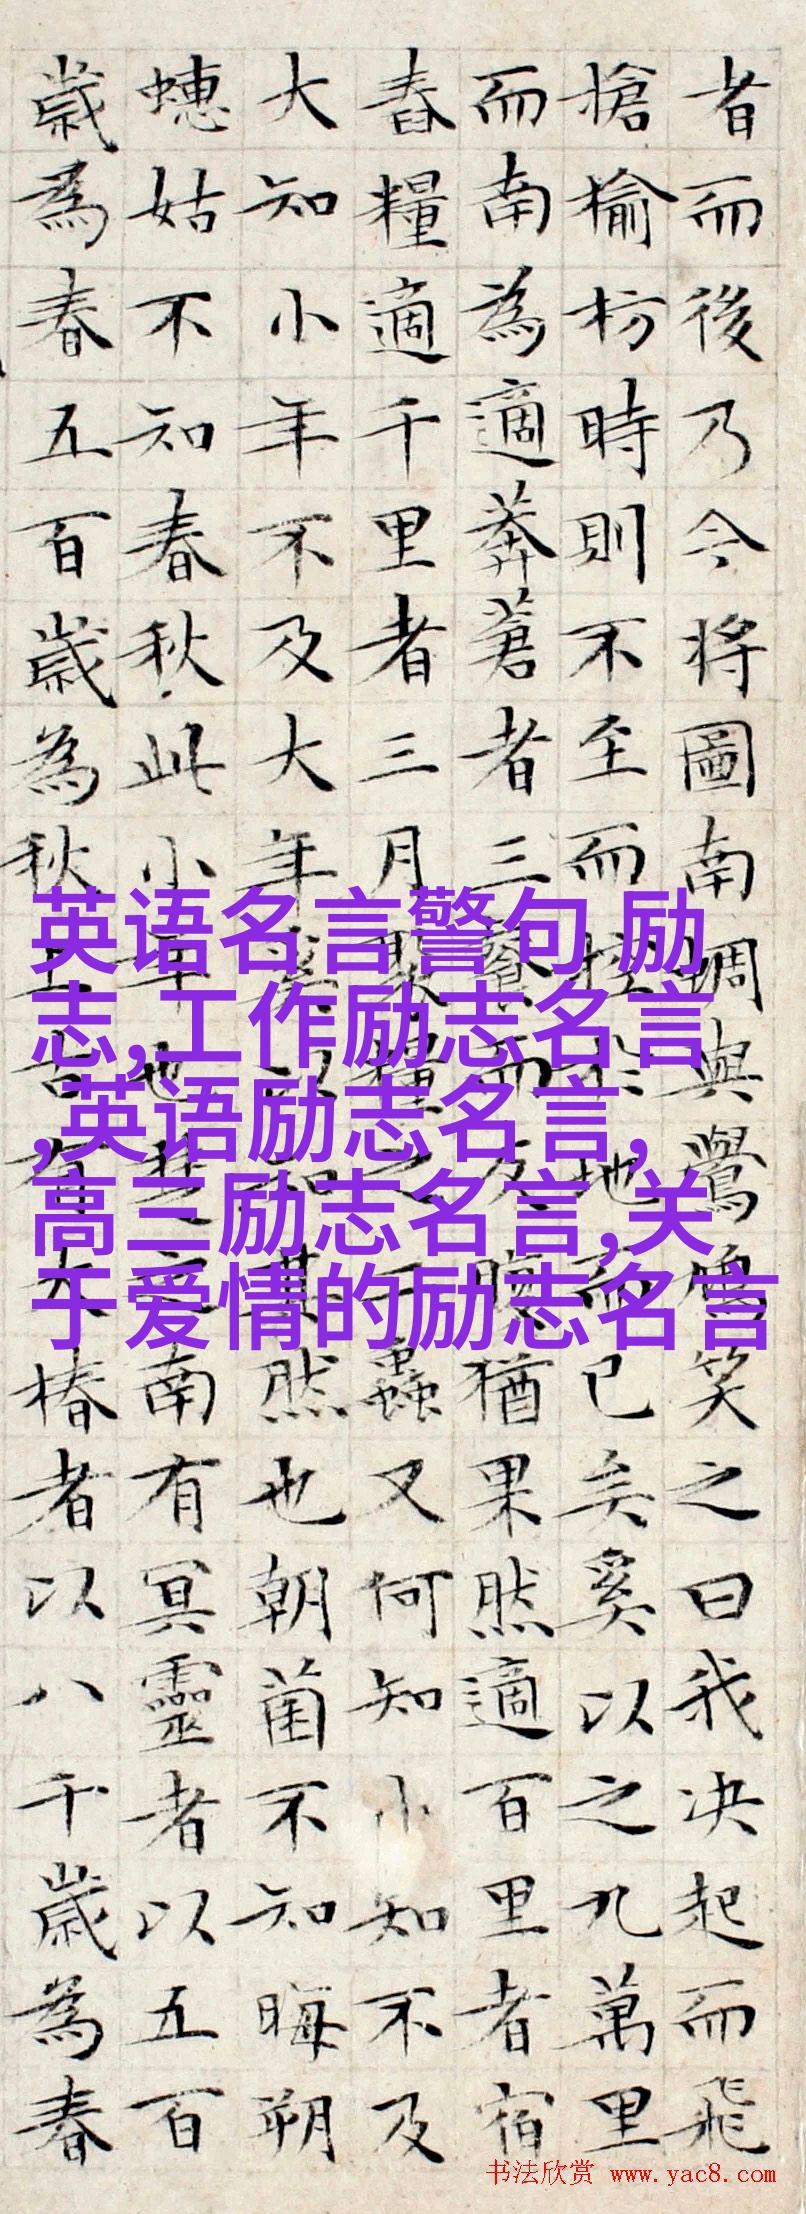 者而後乃今將圖南蜩與鷽鳩笑之曰我决起而飛
搶榆枋時則不至而控於地而已矣奚以之九萬里
而南為適莽蒼者三飡而反腹猶果然適百里者宿
舂糧適千里者三月聚糧之二蟲又何知小知不及
大知小年不及大年奚以知其然也朝菌不知晦朔
蟪姑不知春秋此小年也楚之南有冥靈者以五百
歲為春五百歲為秋上古有大椿者以八千歲為春
英语名言警句 励
志,工作励志名言
,英语励志名言,
高三励志名言,关
于爱情的励志名言
书法欣赏 www.yac8.com